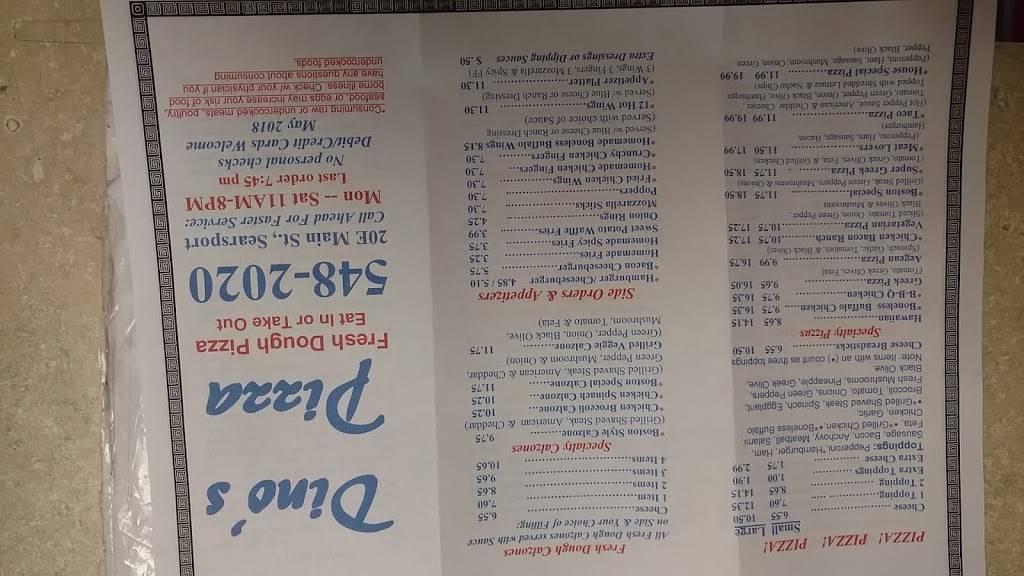 PIZZA! PIZZA! PIZZA!
Small Large
Cheese 6.55 10.50
1 Topping 7.60 12.35
2 Topping 8.65 14.15
Extra Toppings 1.00 1.90
Extra Cheese 1.75 2.99
Toppings: Pepperoni, *Hamburger, Ham,
Sausage, Bacon, Anchovy, Meatball, Salami,
Feta, **Grilled Chicken, **Boneless Buffalo
Chicken, Garlic,
**Grilled Shaved Steak, Spinach, Eggplant,
Broccoli, Tomato, Onions, Green Peppers,
Fresh Mushrooms, Pineapple, Greek Olive,
Black Olive
Note: Items with an (*) count as three toppings
Cheese Breadsticks 6.55 10.50
Specialty Pizzas
Hawaiian 8.65 14.15
*Boneless Buffalo Chicken 9.75 16.35
*B-B-Q Chicken 9.75 16.35
Greek Pizza 9.65 16.05
(Tomato, Greek Olives, Feta)
Aegean Pizza 9.99 16.75
(Spinach, Garlic, Tomatoes, & Black Olives)
*Chicken Bacon Ranch 10.75 17.25
Vegetarian Pizza 10.75 17.25
(Sliced Tomato, Onion, Green Pepper,
Black Olives & Mushroom)
*Boston Special 11.75 18.50
(Grilled Steak, Green Peppers, Mushrooms & Onions)
*Super Greek Pizza 11.75 18.50
(Tomato, Greek Olives, Feta & Grilled Chicken)
*Meat Lovers 11.50 17.99
(Pepperoni, Ham, Sausage, Bacon,
Hamburger)
*Taco Pizza 11.99 19.99
(Hot Pepper Sauce, American & Cheddar Cheese,
Tomato, Green Pepper, Onion, Black Olive, Hamburger
Topped with Shredded Lettuce & Nacho Chips)
*House Special Pizza 11.99 19.99
(Pepperoni, Ham, Sausage, Mushroom, Onion, Green
Pepper, Black Olive)
Fresh Dough Calzones
All Fresh Dough Calzones served with Sauce
on Side & Your Choice of Filling:
Cheese 6.55
1 Item 7.60
2 Items 8.65
3 Items 9.65
4 Items 10.65
Specialty Calzones
*Boston Style Calzone 9.75
(Grilled Shaved Steak, American & Cheddar)
*Chicken Broccoli Calzone 10.25
*Chicken Spinach Calzone 10.25
*Boston Special Calzone 11.75
(Grilled Shaved Steak, American & Cheddar,
Green Pepper, Mushroom & Onion)
Grilled Veggie Calzone 11.75
(Green Pepper, Onion, Black Olive,
Mushroom, Tomato & Feta)
Side Orders & Appetizers
*Hamburger /Cheeseburger 4.85 / 5.10
*Bacon Cheeseburger 5.75
Homemade Fries 3.25
Homemade Spicy Fries 3.75
Sweet Potato Waffle Fries 3.99
Onion Rings 4.25
Mozzarella Sticks 7.30
Poppers 7.30
*Fried Chicken Wings 7.30
*Homemade Chicken Fingers
*Crunchy Chicken Fingers 7.30
*Homemade Boneless Buffalo Wings 8.15
(Served w/ Blue Cheese or Ranch Dressing)
(Served with choice of Sauce)
*12 Hot Wings 11.30
(Served w/ Blue Cheese or Ranch Dressing)
*Appetizer Platter 11.30
(3 Wings, 3 Fingers, 3 Mozzarella & Spicy FF)
Extra Dressings or Dipping Sauces $ .50
Dino's
Pizza
Fresh Dough Pizza
Eat In or Take Out
548-2020
20E Main St., Searsport
Call Ahead For Faster Service:
Mon -- Sat 11AM-8PM
Last order 7:45 pm
No personal checks
Debit/Credit Cards Welcome
May 2018
*Consuming raw or undercooked meats, poultry,
seafood, or eggs may increase your risk of food
borne illness. Check w/ your physician if you
have any questions about consuming
undercooked foods.